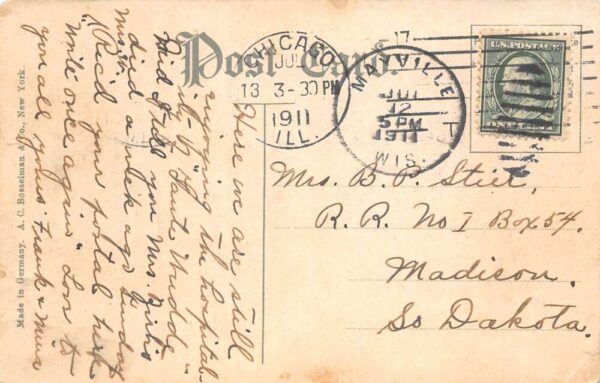 Post Card.
CHICAGO
JUL
13 3-30 PM
1911
ILL.
17
MAYVILLE
JUL
12
5 PM
1911
WIS.
U.S. POSTAGE
Mrs. B. P. Stier,
R. R. No 1 Box 54.
Madison.
So Dakota.
Here we are still
enjoying the hospital-
ity by
Did I tell you Mrs.
died a week ago Sunday
(Rec'd your postal here
Write once again" Love to
you all yours Frank &
Made in Germany. A. C. Bosselman & Co., New York.